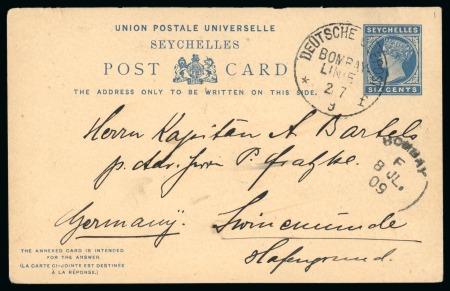 UNION POSTALE UNIVERSELLE
SEYCHELLES
POST CARD
THE ADDRESS ONLY TO BE WRITTEN ON THIS SIDE.
SEYCHELLES
SIX CENTS
DEUTSCHE
BOMBAY
LINIE
2/7
9
Herrn Kapitän A. Bartels
p. Adr. Herrn P.
Germany. Swinemünde
Hafengrund.
BOMBAY
F
8 JL.
09
THE ANNEXED CARD IS INTENDED
FOR THE ANSWER.
(LA CARTE CI-JOINTE EST DESTINÉE
À LA RÉPONSE.)